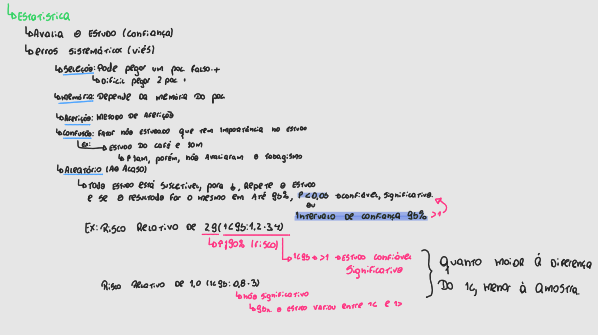 ↳Estatística
↳Avalia o estudo (confiança)
↳erros sistemáticos (viés)
↳Seleção: Pode pegar um pac falso +
↳Difícil pegar 2 pac +
↳Memória: Depende da memória do pac
↳Aferição: Método de aferição
↳Confusão: Fator não estudado que tem importância no estudo
↳Ex: → Estudo do café e IAM
↳P IAM, porém, não avaliaram o tabagismo
↳Aleatório (ao acaso)
↳Todo estudo está suscetível, para b, repete o estudo
e se o resultado for o mesmo em até 95%, P<0,05 →confiável, significativa.
ou
Intervalo de confiança 95% >1
Ex: Risco Relativo de 2,9 (IC95: 1,2-3,4)
↳P/90% (risco)
↳IC95 → >1 → estudo confiável
significativo
Risco Relativo de 1,0 (IC95: 0,8-3)
↳não significativo
o estudo variou entre
Quanto maior à diferença
Do IC, menor à amostra